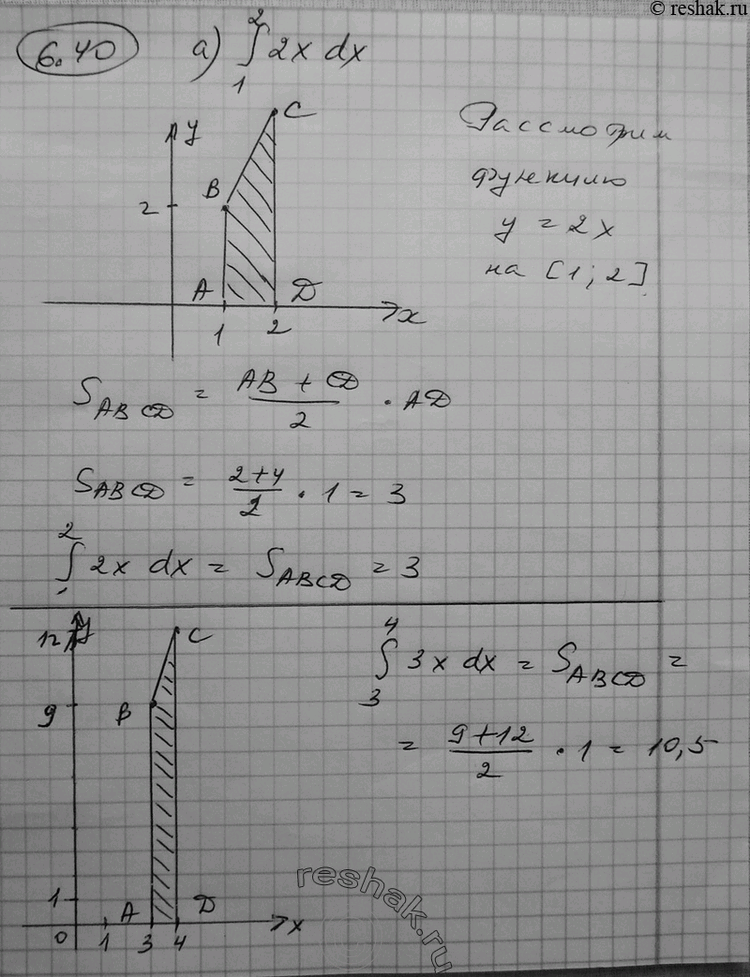 © reshak.ru
6.40 а) ∫₁² 2x dx
Рассмотрим
функцию
y = 2x
на [1; 2]
y
C
B
2
A
D
1
2
x
S_ABCD = (AB + CD)/2 · AD
S_ABCD = (2+4)/2 · 1 = 3
∫₁² 2x dx = S_ABCD = 3
12
y
C
9
B
1
A
D
0
1
3
4
x
∫₃⁴ 3x dx = S_ABCD =
= (9+12)/2 · 1 = 10,5
reshak.ru